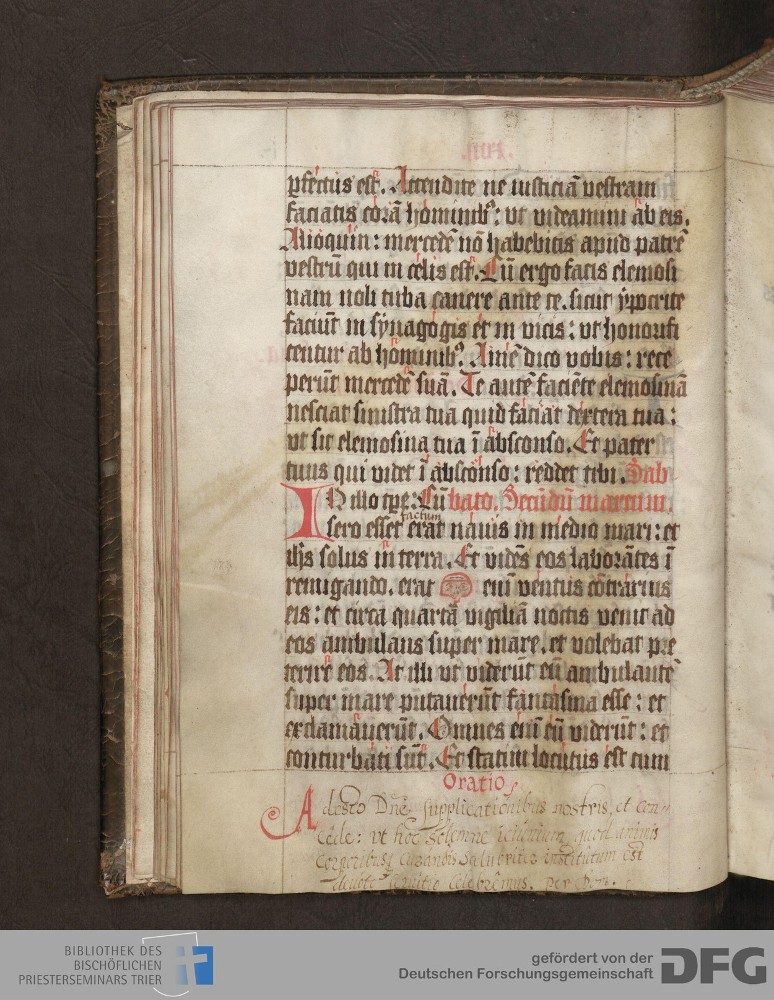 ꝑfectus est. Attendite ne iusticiā vestram
faciatis corā hominibꝰ: vt videamini ab eis.
Alioquin: mercedē nō habebitis apud patrē
vestrū qui in celis est. Cū ergo facis elemosi
nam noli tuba canere ante te. sicut ypocrite
faciūt in synagogis et in vicis: vt honorifi
centur ab hominibꝰ. Amē dico vobis: rece
perūt mercedē suā. Te autē faciēte elemosinā
nesciat sinistra tua quid faciat dextera tua:
vt sit elemosina tua ī absconso. Et pater
tuus qui videt ī absconso: reddet tibi. Sab
IN illo tꝑe: Cū bato. Secūdū marcum.
sero esset factum erat nauis in medio mari: et
ihs solus in terra. Et vidēs eos laborātes ī
remigando. erat enī ventus cōtrarius
eis: et circa quartā vigiliā noctis venit ad
eos ambulans super mare. et volebat pre
terire eos. At illi vt viderūt eū ambulantē
super mare putauerūt fantasma esse: et
exclamauerūt. Omnes enī eū viderūt: et
conturbati sūt. Et statim locutus est cum
Oratio
Adesto Dn̄e supplicationibus nostris, et con-
cede: vt hoc solemne ieiunium, quod animis
corporibusq curandis salubriter institutum est
devoto seruitio celebremus. per
BIBLIOTHEK DES
BISCHÖFLICHEN
PRIESTERSEMINARS TRIER
gefördert von der
Deutschen Forschungsgemeinschaft DFG